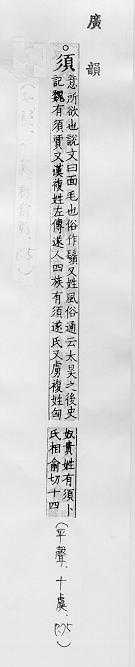 廣韻
。須
意所欲也說文曰面毛也俗作鬚又姓風俗通云太昊之後史
記魏有須賈又漢複姓左傳遂人四族有須遂氏又虜複姓匈
奴貴姓有須卜
氏相俞切十四
(平聲、十虞、P75)